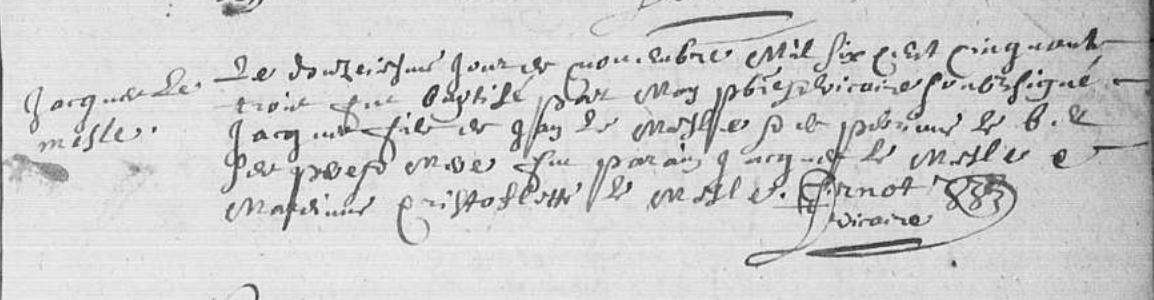 Jacques Le
mesle.
Le douzeiesme jour de novembre Mil six cent cinquante
trois fut baptisé par Moy pbre vicaire soubzsigné
Jacques fils de Jan Le Mesle et de le
fut parain Jacques le Mesle et
Maraine Cristoflette le Mesle. Ernot
vicaire